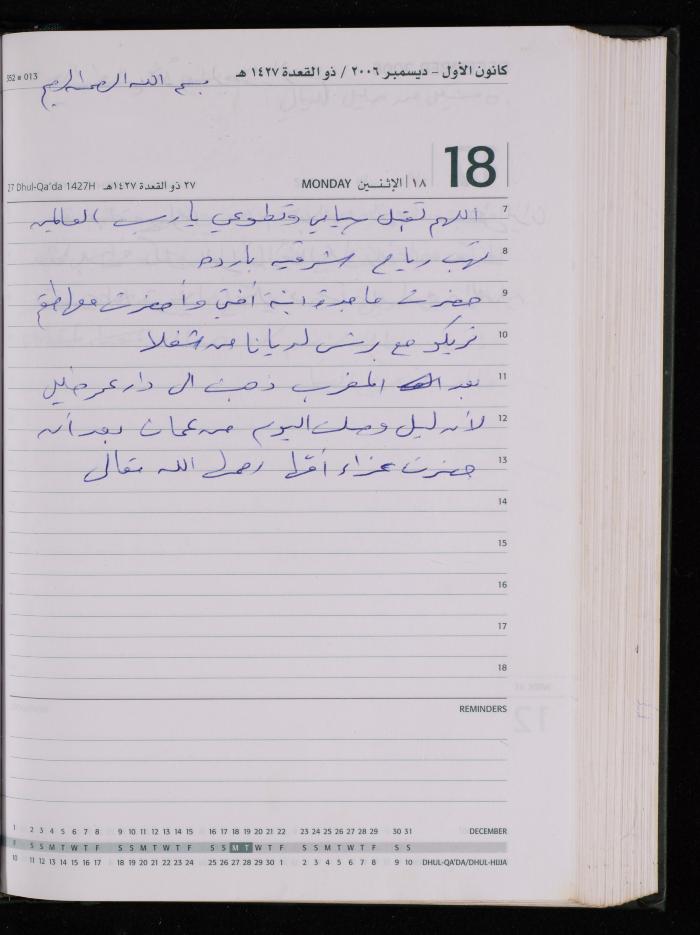 كانون الأول - ديسمبر ٢٠٠٦ / ذو القعدة ١٤٢٧ هـ
352 013
بسم الله الرحمن الرحيم
18
١٨ الإثنـــين MONDAY
٢٧ ذو القعدة ١٤٢٧هـ 27 Dhul-Qa'da 1427H
7 اللهم تقبل صيامي وتطوعي يا رب العالمين
8 تهب رياح شرقيه بارده
9 حضرت ماجدة ابنة أختي وأحضرت معها طقم
10 تريكو مع برنس لديانا من شغلا
11 بعد المغرب ذهبت الى دار عمر خليل
12 لأن ليل وصلت اليوم من عمان بعد أن
13 حضرت عزاء أمها رحمها الله تعالى
14
15
16
17
18
REMINDERS
1 2 3 4 5 6 7 8 9 10 11 12 13 14 15 16 17 18 19 20 21 22 23 24 25 26 27 28 29 30 31 DECEMBER
F S S M T W T F S S M T W T F S S M T W T F S S M T W T F S S
10 11 12 13 14 15 16 17 18 19 20 21 22 23 24 25 26 27 28 29 30 1 2 3 4 5 6 7 8 9 10 DHUL-QA'DA/DHUL-HIJJA